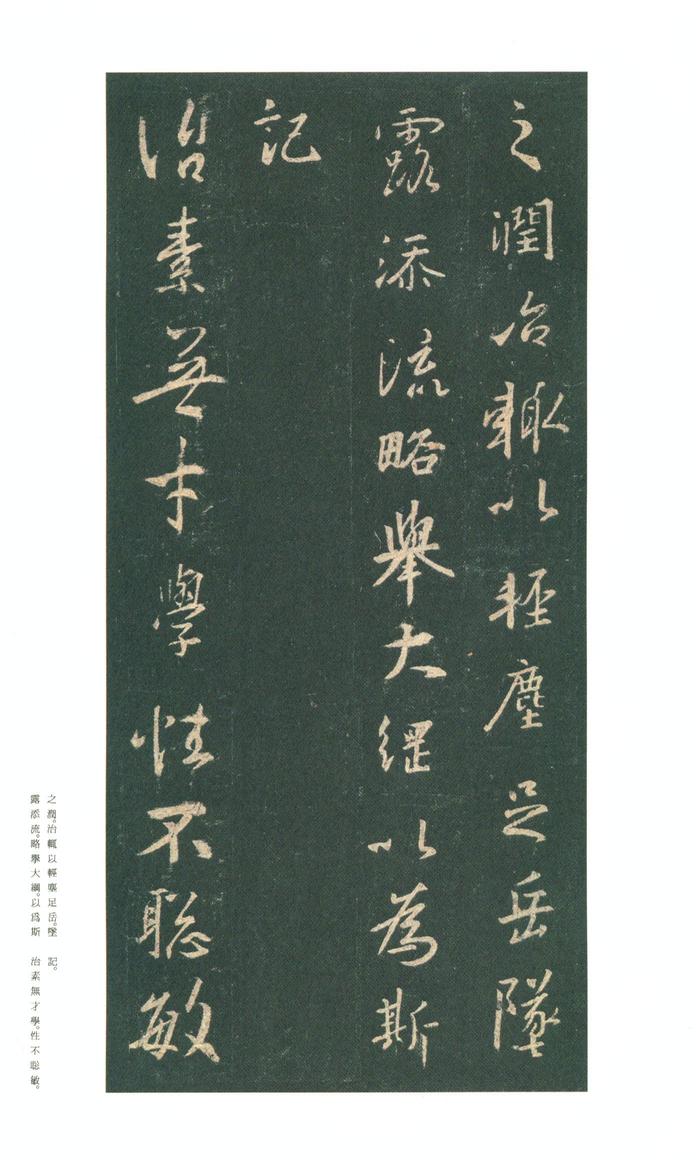 之潤治輒以輕塵足岳墜
露添流略舉大綱以為斯
記
治素無才學性不聡敏
之潤。治輒以輕塵足岳。墜
露添流。略擧大綱。以爲斯
記。
治素無才學。性不聡敏。